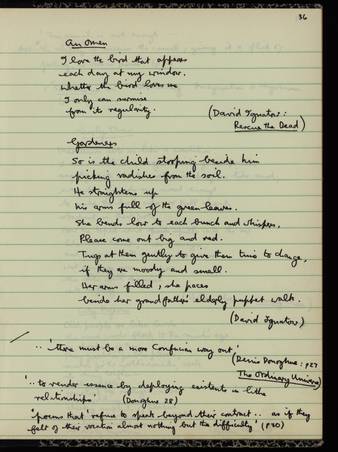 36
An Omen
I love the bird that appears
each day at my window.
Whether the bird loves me
I only can surmise
from its regularity.
(David Ignatow:
Rescue the Dead)
Gardeners
So is the child stooping beside him
picking radishes from the soil.
He straightens up
his arms full of the green-leaves.
She bends low to each bunch and whispers,
Please come out big and red.
Tugs at them gently to give them time to change,
if they are moody and small.
Her arms filled, she paces
beside her grandfather's elderly puppet walk.
(David Ignatow)
.. 'there must be a more Confucian way out'
(Denis Donoghue: p27
The Ordinary Universe)
'.. to render essence by deploying existents in lithe
relationships' (Donoghue 28)
'poems that refuse to speak beyond their contract .. as if they
felt of their vocation almost nothing but the difficulty' (p90)